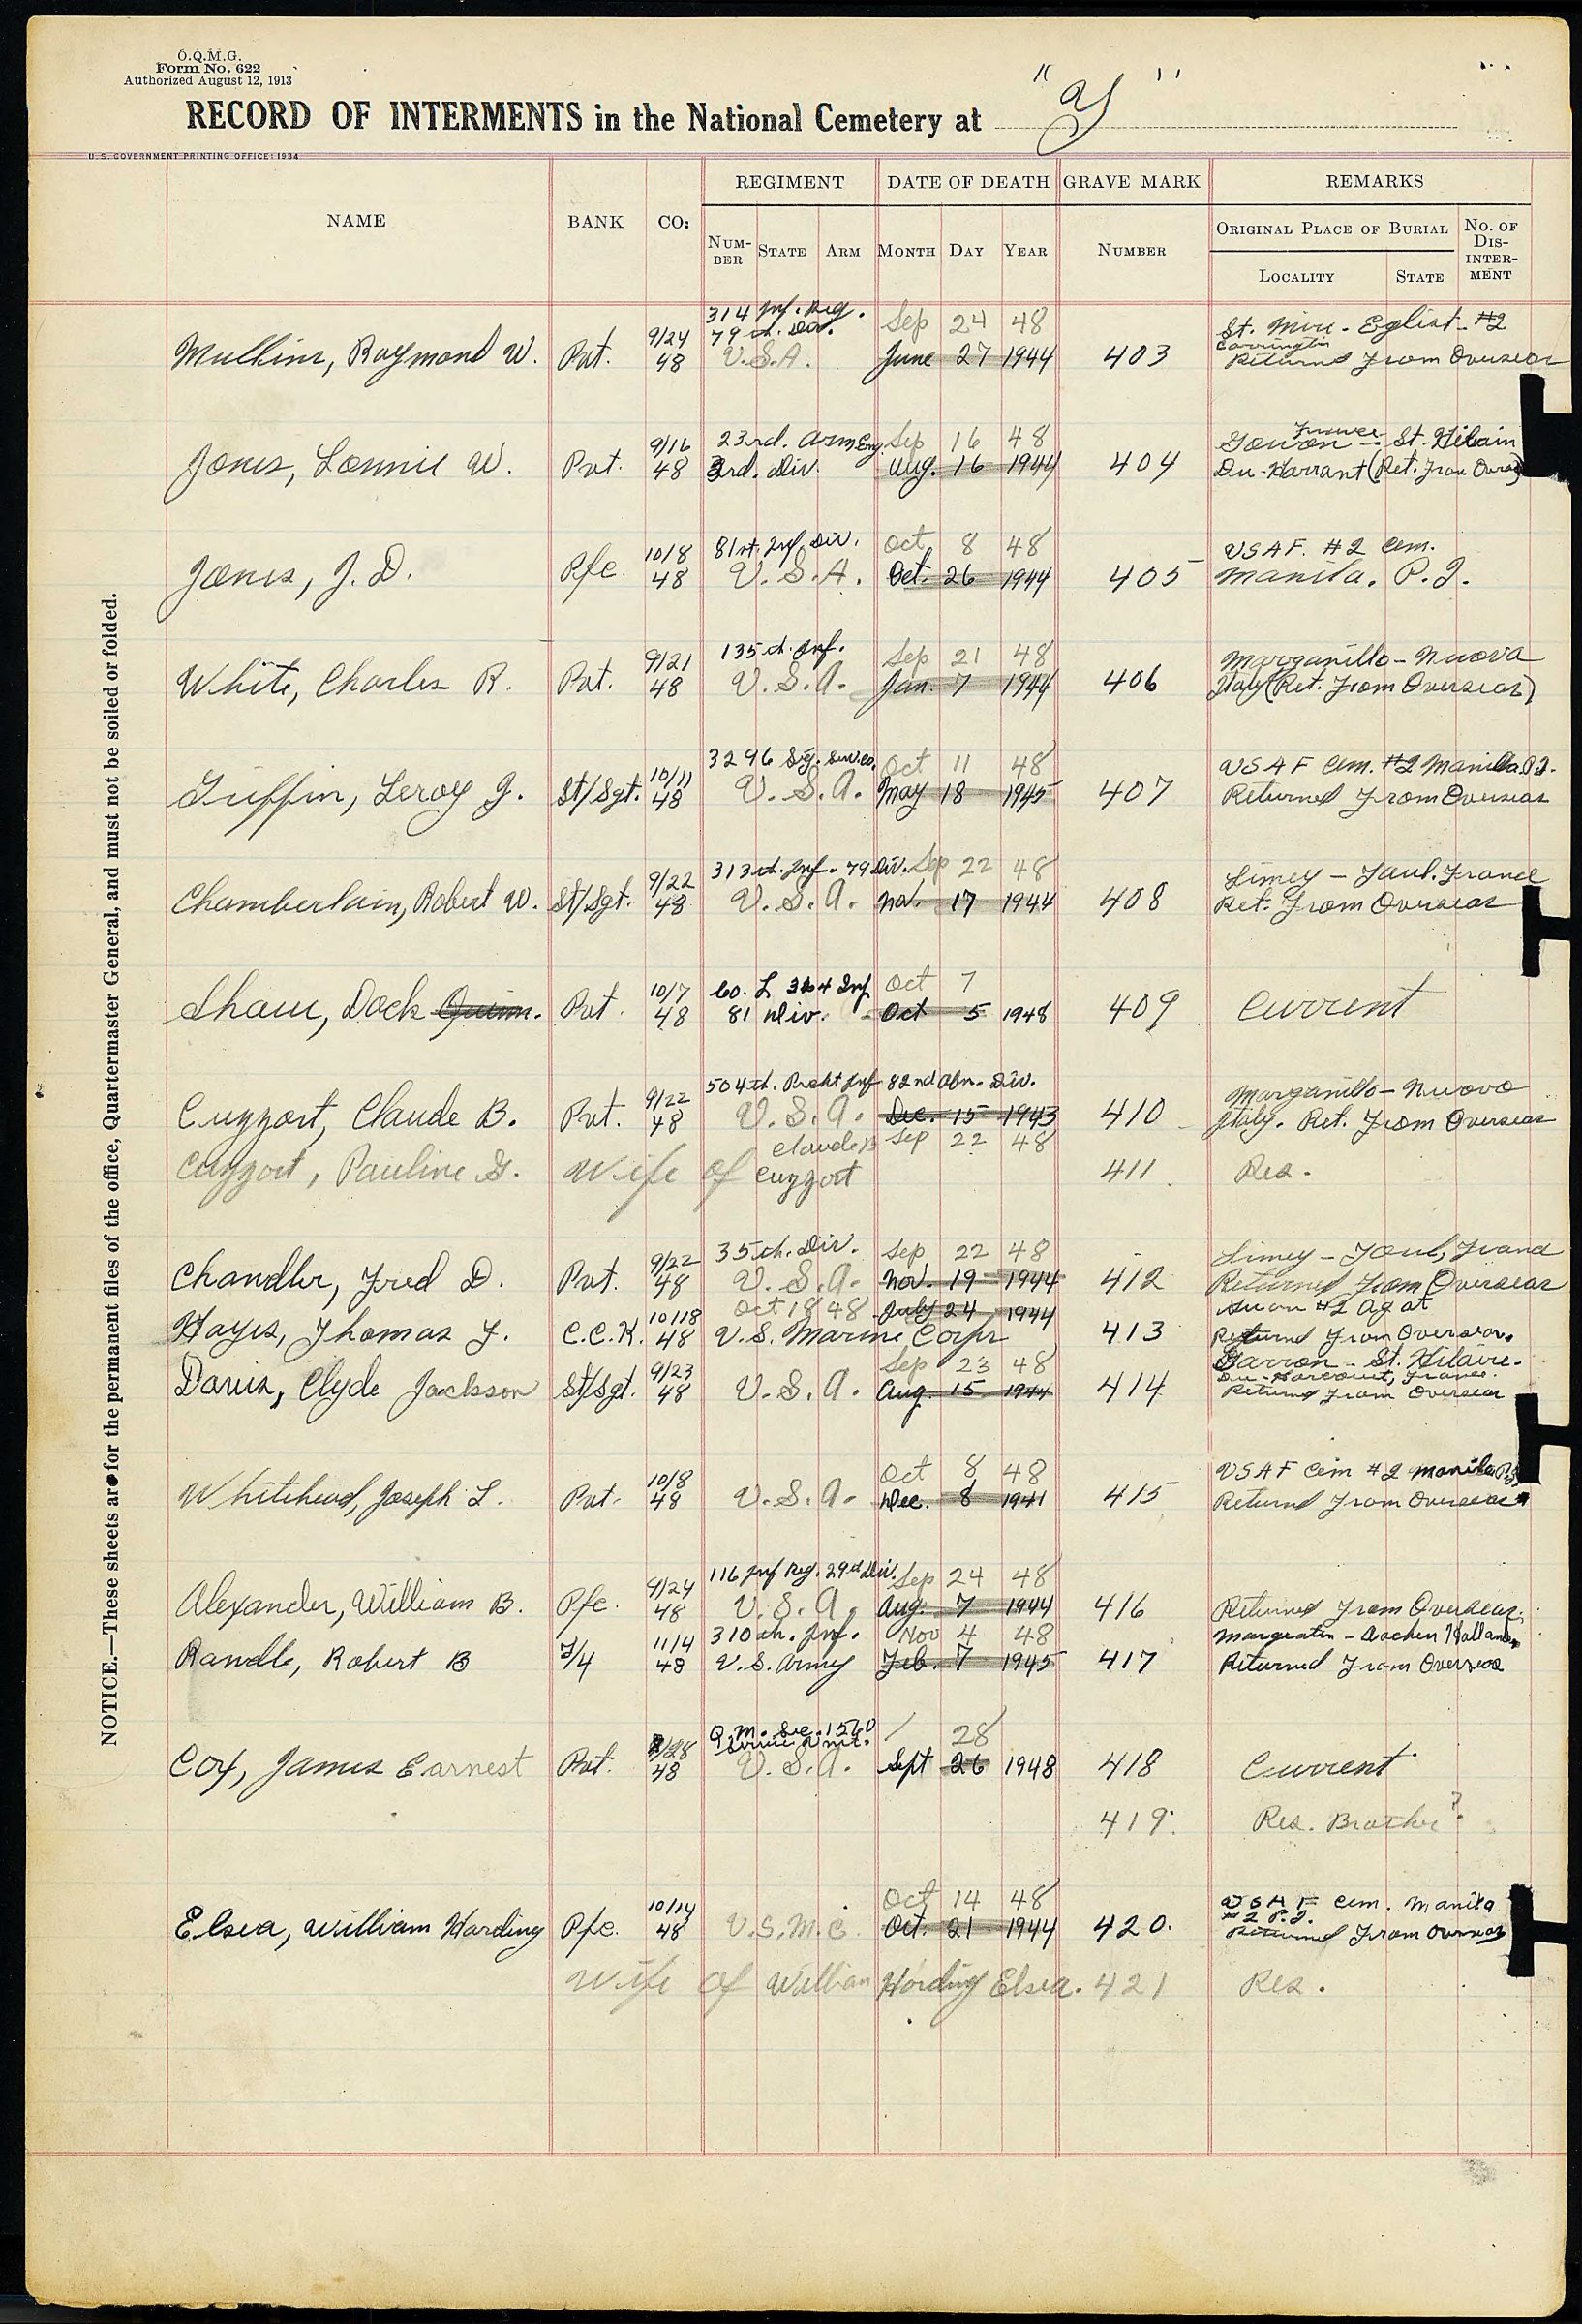 O.Q.M.G.
Form No. 622
Authorized August 12, 1913
RECORD OF INTERMENTS in the National Cemetery at "Y"
U. S. GOVERNMENT PRINTING OFFICE: 1934
NAME BANK CO: REGIMENT DATE OF DEATH GRAVE MARK REMARKS
NUMBER STATE ARM MONTH DAY YEAR NUMBER ORIGINAL PLACE OF BURIAL NO. OF DISINTERMENT
LOCALITY STATE
314 Inf. Reg. Sep 24 48 St. Mire - Eglist #2
9/24 79th. Div. Carrington
Mullins, Raymond W. Pvt. 48 U.S.A. June 27 1944 403 Returned From Overseas
9/16 23rd. Arm Eng. Sep 16 48 France St-Hilain
Jones, Lonnie W. Pvt. 48 3rd. Div. Aug. 16 1944 404 Du-Harrant (Ret. From Overseas)
10/8 81st. Inf. Div. Oct 8 48 USAF. #2 Cem.
Jones, J. D. Pfc. 48 U.S.A. Oct. 26 1944 405 Manila. P.I.
9/21 135th. Inf. Sep 21 48 Marzanillo - Nuova
White, Charles R. Pvt. 48 U.S.A. Jan. 7 1944 406 Italy (Ret. From Overseas)
10/11 3296 Sig. Serv. Co. Oct 11 48 USAF Cem. #2 Manila P.I.
Griffin, Leroy J. St/Sgt. 48 U.S.A. May 18 1945 407 Returned From Overseas
9/22 313th. Inf. 79 Div. Sep 22 48 Limey - Toul. France
Chamberlain, Robert W. St/Sgt. 48 U.S.A. Nov. 17 1944 408 Ret. From Overseas
10/7 Co. L 324 Inf Oct 7
Shaw, Dock Quinn. Pvt. 48 81 Div. Oct 5 1948 409 Current
9/22 504th. Pracht Inf 82nd Abn. Div. Marzanillo - Nuovo
Cuzzort, Claude B. Pvt. 48 U.S.A. Dec. 15 1943 410 Italy. Ret. From Overseas
Claude B Sep 22 48
Cuzzort, Pauline G. Wife of Cuzzort 411 Res.
9/22 35th. Div. Sep 22 48 Limey - Toul, France
Chandler, Fred D. Pvt. 48 U.S.A. Nov. 19 1944 412 Returned From Overseas
10/18 Oct 18 48 July 24 1944 #2 Agat
Hayes, Thomas J. C.C.K. 48 U.S. Marine Corps 413 Returned From Overseas.
9/23 Sep 23 48 St. Hilaire-
Du-Harcourt, France.
Davis, Clyde Jackson St/Sgt. 48 U.S.A. Aug. 15 1944 414 Returned From Overseas
10/8 Oct 8 48 USAF Cem #2 Manila P.I.
Whitehead, Joseph L. Pvt. 48 U.S.A. Dec. 8 1941 415 Returned From Overseas
9/24 116 Inf Reg. 29th Div. Sep 24 48
Alexander, William B. Pfc. 48 U.S.A. Aug. 7 1944 416 Returned From Overseas.
11/4 310th. Inf. Nov 4 48 Margraten - Aachen Holland
Randle, Robert B T/4 48 U.S. Army Feb. 7 1945 417 Returned From Overseas
/28 Q.M. Sec. 1560 Service Unit. 28
Cox, James Earnest Pvt. 48 U.S.A. Sept 26 1948 418 Current
419. Res. Brother?
10/14 Oct 14 48 USAF Cem. Manila
#2 P.I.
Elsea, William Harding Pfc. 48 U.S.M.C. Oct. 21 1944 420. Returned From Overseas
Wife of William Harding Elsea. 421 Res.
NOTICE.—These sheets are for the permanent files of the office, Quartermaster General, and must not be soiled or folded.